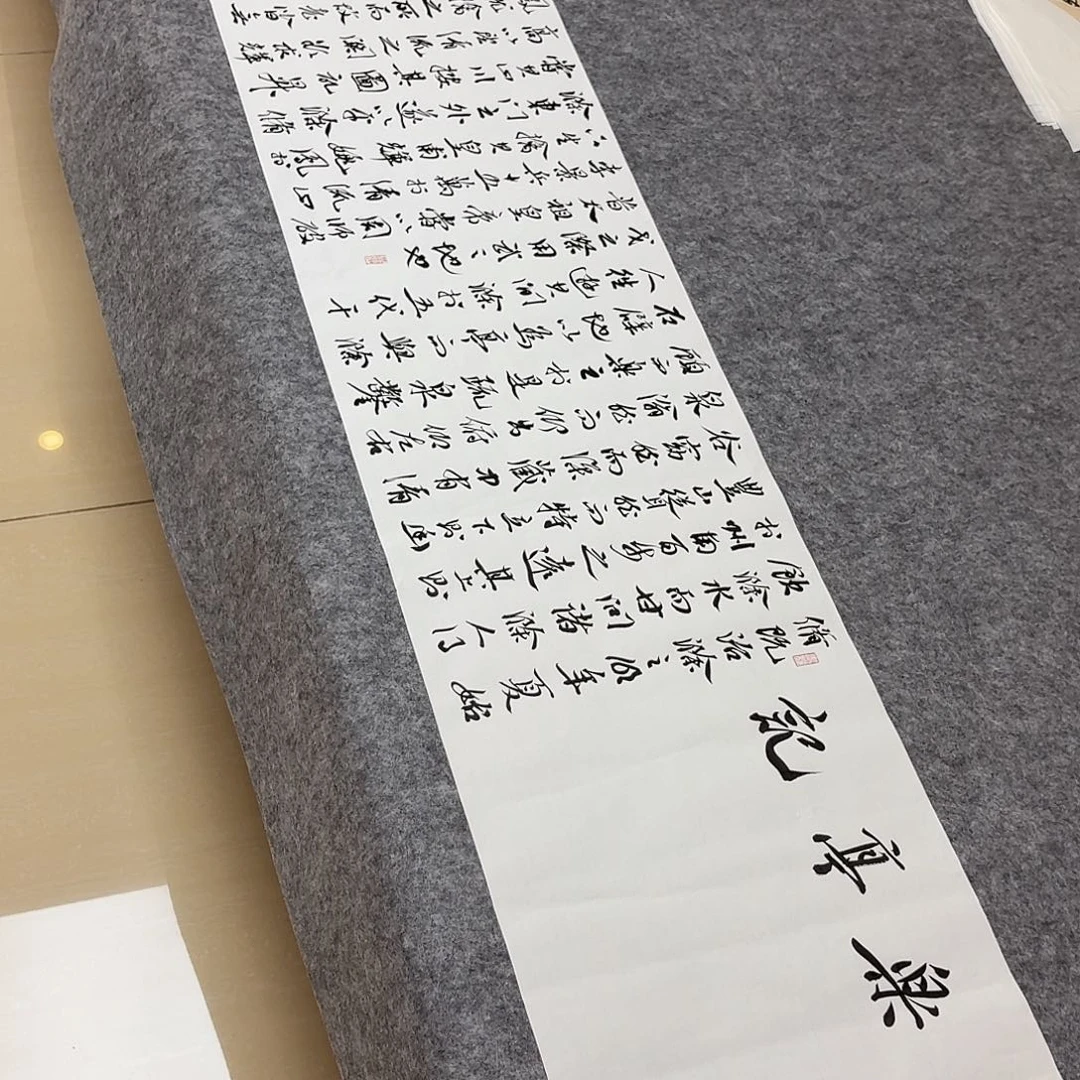 樂亭記
脩既治滁之明年夏始
飲滁水而甘問諸滁人得
於州南百步之遠其上則
豐山聳然而特立下則幽
谷窈然而深藏中有清
泉滃然而仰出俯仰左右
顧而樂之於是疏泉鑿
石闢地以為亭而與滁
人往遊其間滁於五代干
戈之際用武之地也
昔太祖皇帝嘗以周師破
李景兵十五萬於清流山
下生擒其皇甫暉姚鳳於
滁東門之外遂以平滁脩
嘗其山川按其圖記昇
高以望清流之關欲求暉
鳳就擒之所而故老皆無